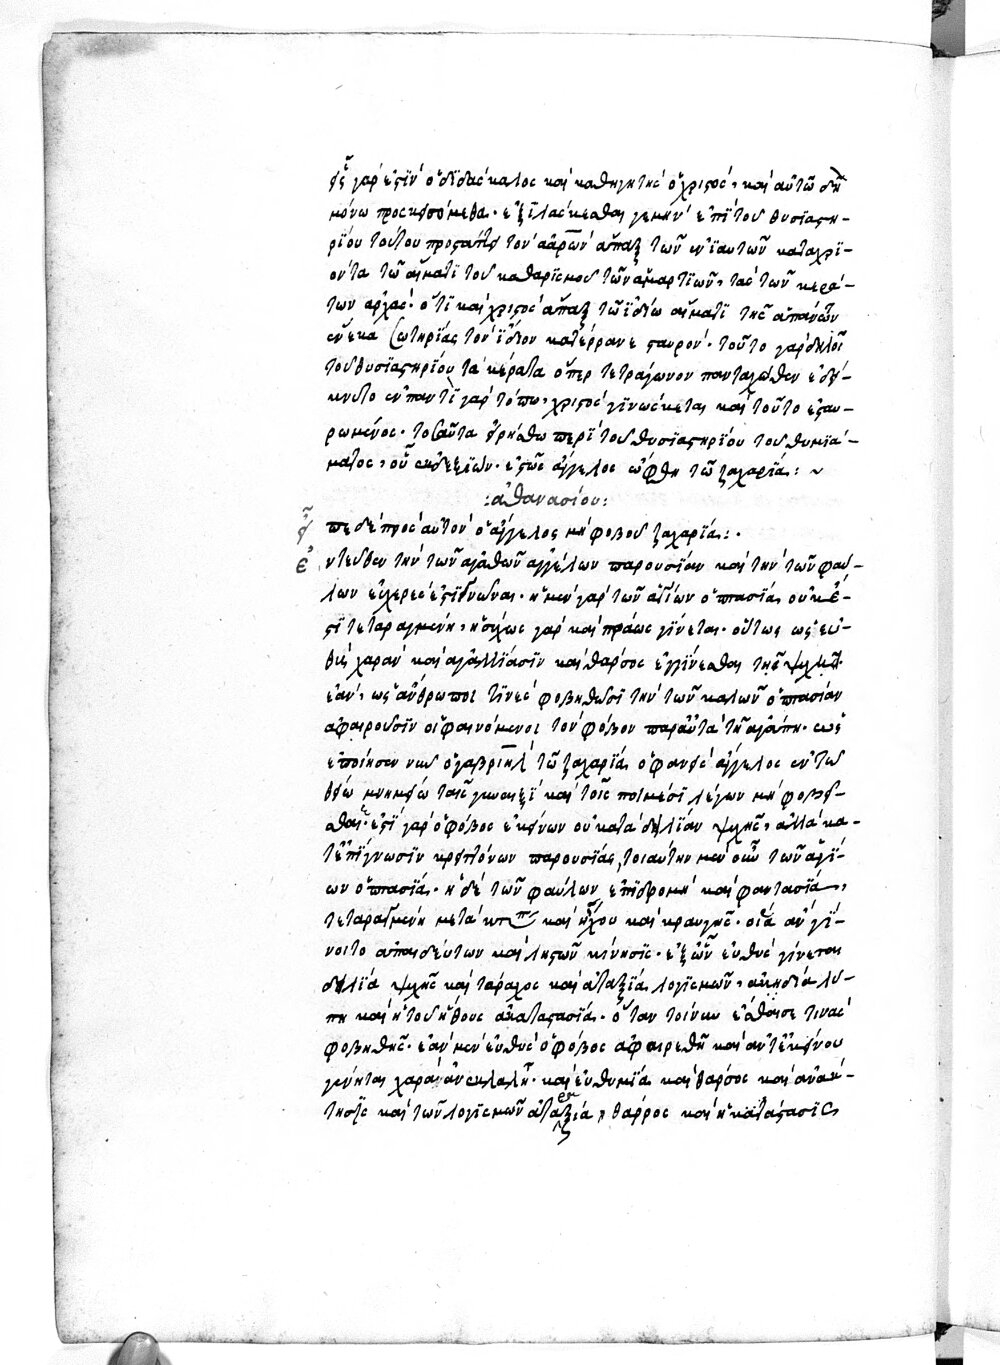 εἷς γάρ ἐστιν ὁ διδάσκαλος καὶ καθηγητὴς ὁ χριστός, καὶ αὐτῷ δὴ
μόνῳ προσκεισόμεθα. ἐξιλάσκεσθαι γε μὴν ἐπὶ τοῦ θυσιαστη-
ρίου τούτου προστάττει τὸν ἀαρὼν ἅπαξ τῶν ἐνιαυτῶν καταχρί-
οντα τῷ αἵματι τοῦ καθαρισμοῦ τῶν ἁμαρτιῶν, τὰς τῶν κερά-
των ἀρχάς. ὅτι καὶ χριστὸς ἅπαξ τῷ ἰδίῳ αἵματι τῆς ἁπάντων
ἕνεκα σωτηρίας τὸν ἴδιον κατέρρανε σταυρόν. τοῦτο γὰρ δηλοῖ
τοῦ θυσιαστηρίου τὰ κέρατα ὅπερ τετράγωνον πανταχόθεν ἐδεί-
κνυτο ἐν παντὶ γὰρ τόπῳ, χριστὸς γινώσκεται καὶ τοῦτο ἐσταυ-
ρωμένος. τοσαῦτα εἰρήσθω περὶ τοῦ θυσιαστηρίου τοῦ θυμιά-
ματος, οὗ ἐκ δεξιῶν. ἑστὼς ἄγγελος ὤφθη τῷ ζαχαρίᾳ: ~
:ἀθανασίου:
εἶπε δὲ πρὸς αὐτὸν ὁ ἄγγελος μὴ φοβοῦ ζαχαρία:.
ἐντεῦθεν τὴν τῶν ἀγαθῶν ἀγγέλων παρουσίαν καὶ τὴν τῶν φαύ-
λων εὐχερὲς ἐστι διγνῶναι. ἡ μὲν γὰρ τῶν ἁγίων ὀπτασία οὐκ ἔ-
στι τεταραγμένη, ἡσύχως γὰρ καὶ πράως γίνεται. οὕτως ὡς εὐ-
θὺς χαρὰν καὶ ἀγαλλίασιν καὶ θάρσος ἐγγίνεσθαι τῇ ψυχῇ.
ἐὰν, ὡς ἄνθρωποι τινὲς φοβηθῶσι τὴν τῶν καλῶν ὀπτασίαν
ἀφαιροῦσιν οἱ φαινόμενοι τὸν φόβον παρ' αὐτὰ τῇ ἀγάπῃ. ὡς
ἐποίησεν γαβριὴλ τῷ ζαχαρίᾳ ὁ φανεὶς ἄγγελος ἐν τῷ
θείῳ μνημείῳ ταῖς γυναιξὶ καὶ τοῖς ποιμέσι λέγων μὴ φοβεῖ-
σθαι. ἔστι γὰρ ὁ φόβος ἐκείνων οὐ κατὰ δειλίαν ψυχῆς, ἀλλὰ κα-
τ' ἐπίγνωσιν κρειττόνων παρουσίας, τοιαύτη μὲν οὖν τῶν ἁγί-
ων ὀπτασία. ἡ δὲ τῶν φαύλων ἐπιδρομὴ καὶ φαντασία,
τεταραγμένη μετὰ κτύπου καὶ ἤχου καὶ κραυγῆς. οἵα ἂν γέ-
νοιτο ἀπαιδεύτων καὶ λῃστῶν κίνησις. ἐξ ὧν εὐθὺς γίνεται
δειλία ψυχῆς καὶ τάραχος καὶ ἀταξία λογισμῶν, ἀκηδία λύ-
πη καὶ ἡ τοῦ ἤθους ἀκαταστασία. ὅταν τοίνυν θεάσησθε τινὰς
φοβηθῇς. ἐὰν μὲν εὐθὺς ὁ φόβος ἀφαιρεθῇ καὶ ἀντ' ἐκείνου
γένηται χαρὰ ἀνεκλάλητος. καὶ εὐθυμία καὶ θάρσος καὶ ἀνάκ-
τησις καὶ τῶν λογισμῶν ἀταραξία, θάρρος καὶ ἡ κατάστασις